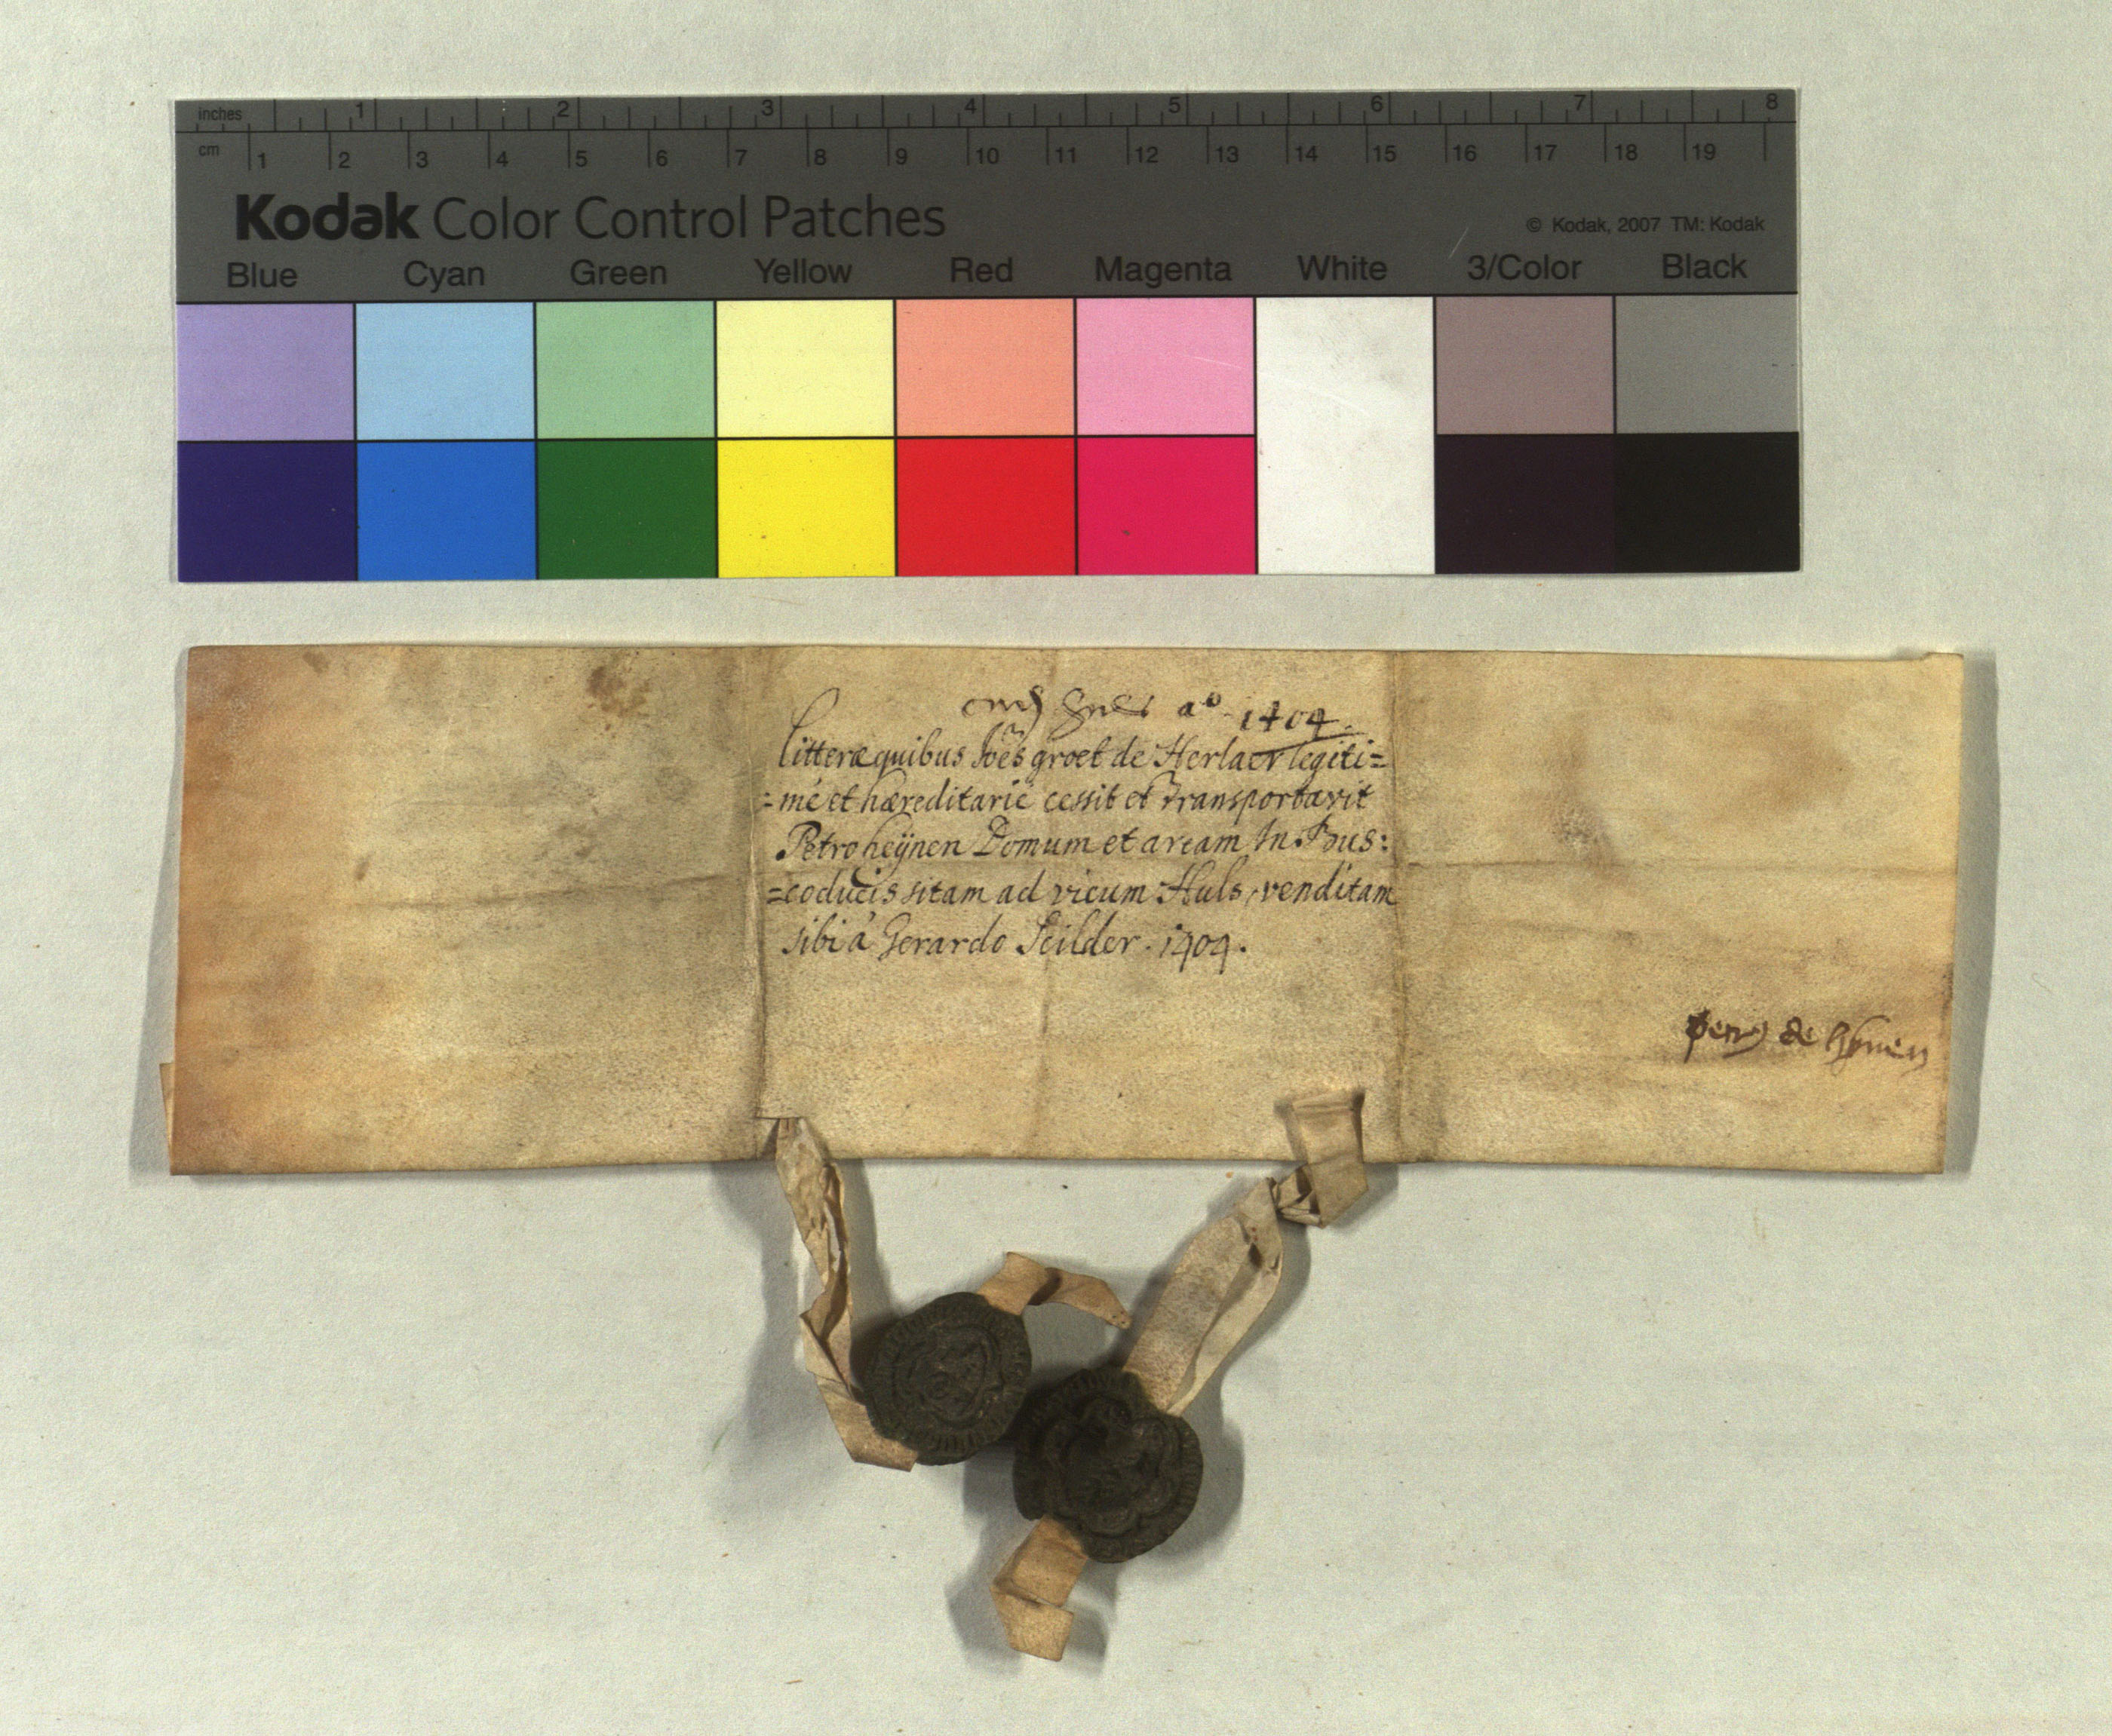 inches 1 2 3 4 5 6 7 8
cm 1 2 3 4 5 6 7 8 9 10 11 12 13 14 15 16 17 18 19
Kodak Color Control Patches
© Kodak, 2007 TM: Kodak
Blue Cyan Green Yellow Red Magenta White 3/Color Black
aº 1404.
Litteræ quibus Joes groet de Herlaer legiti=
=mè et hæreditariè cessit et transportavit
Petro heÿnen Domum et aream In Bus:
=coducis sitam ad vicum Huls, venditam
sibi à Gerardo Scilder. 1404.
de